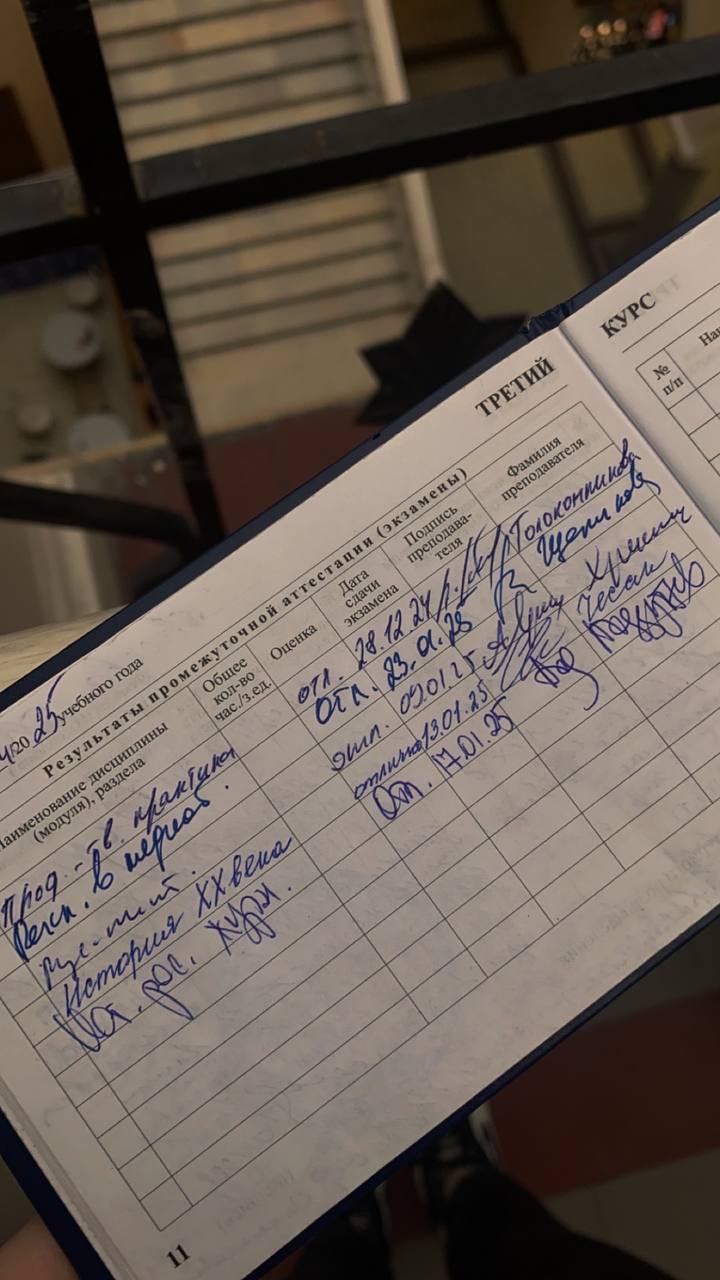 ТРЕТИЙ
КУРС
25 учебного года
Результаты промежуточной аттестации (экзамены)
Наименование дисциплины (модуля), раздела
Общее кол-во час./з.ед.
Оценка
Дата сдачи экзамена
Подпись преподава-теля
Фамилия преподавателя
№ п/п
Прод.-тв. практика отл. 28.12.24 Толоконникова
в период. отл. 23.01.25
отл. 09.01.25
История XX века отлично 13.01.25
Ист. рос. журн. Отл. 17.01.25
11